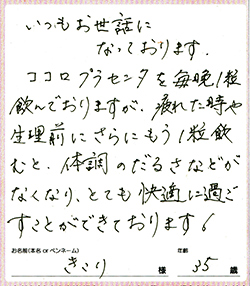 いつもお世話に
なっております.
ココロプラセンタを毎晩1粒
飲んでおりますが、疲れた時や
生理前にさらにもう1粒飲
むと、体調のだるさなどが
なくなり、とても快適に過ご
すことができております!
お名前(本名 or ペンネーム)
年齢
きこり 様 35 歳